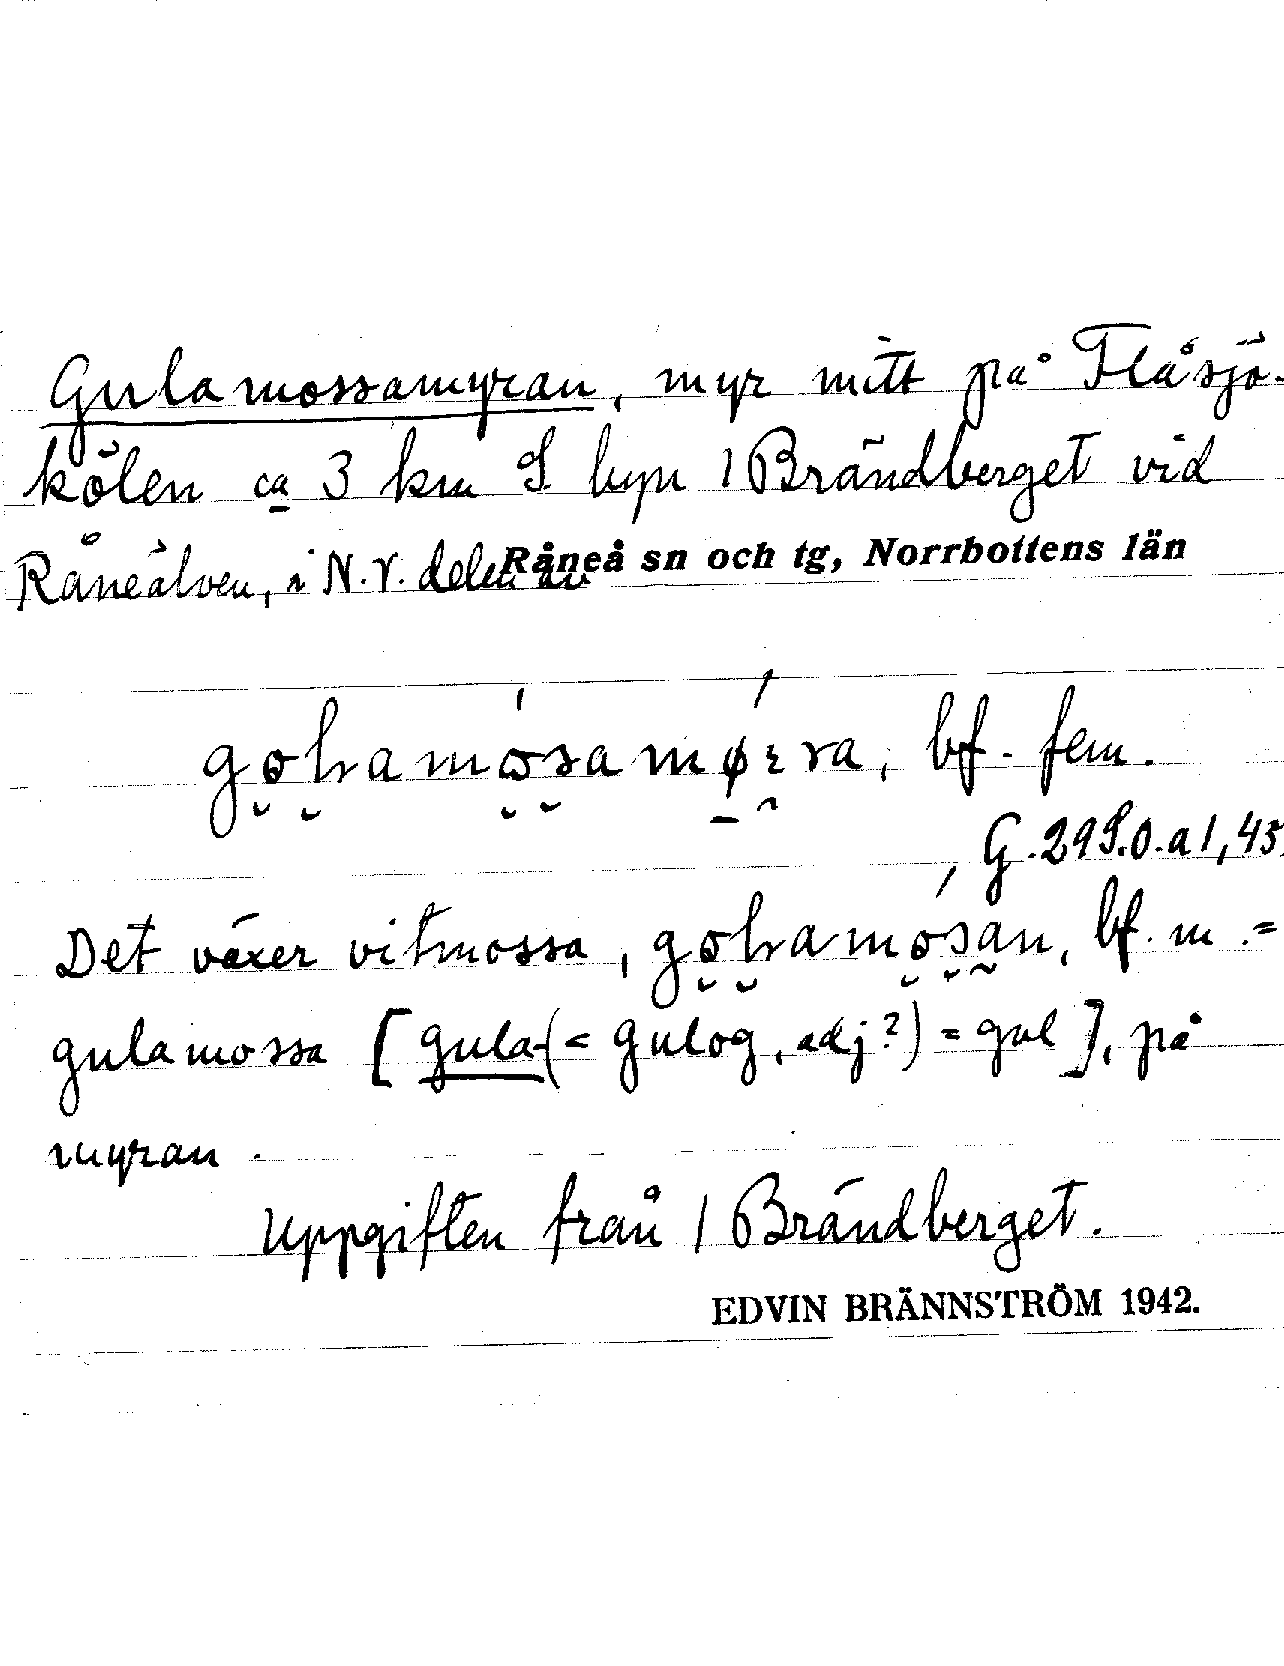 Gulamossamyran, myr mitt på Flåsjö-
kölen ca 3 km S byn 1 Brändberget vid
Råneälven, i N.V. delen av Råneå sn och tg, Norrbottens län
bf. fem.
G.29S.O.a1,43.
Det växer vitmossa, bf. m. =
gulamossa [gula- (= gulog, adj?) = gul], på
myran.
Uppgiften från 1 Brändberget.
EDVIN BRÄNNSTRÖM 1942.